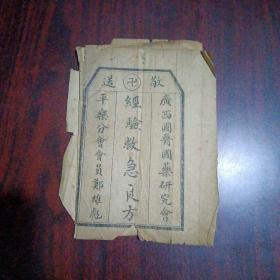 敬送
廣西國醫國藥研究會
卍
經驗救急良方
平樂分會會員鄭雄彪